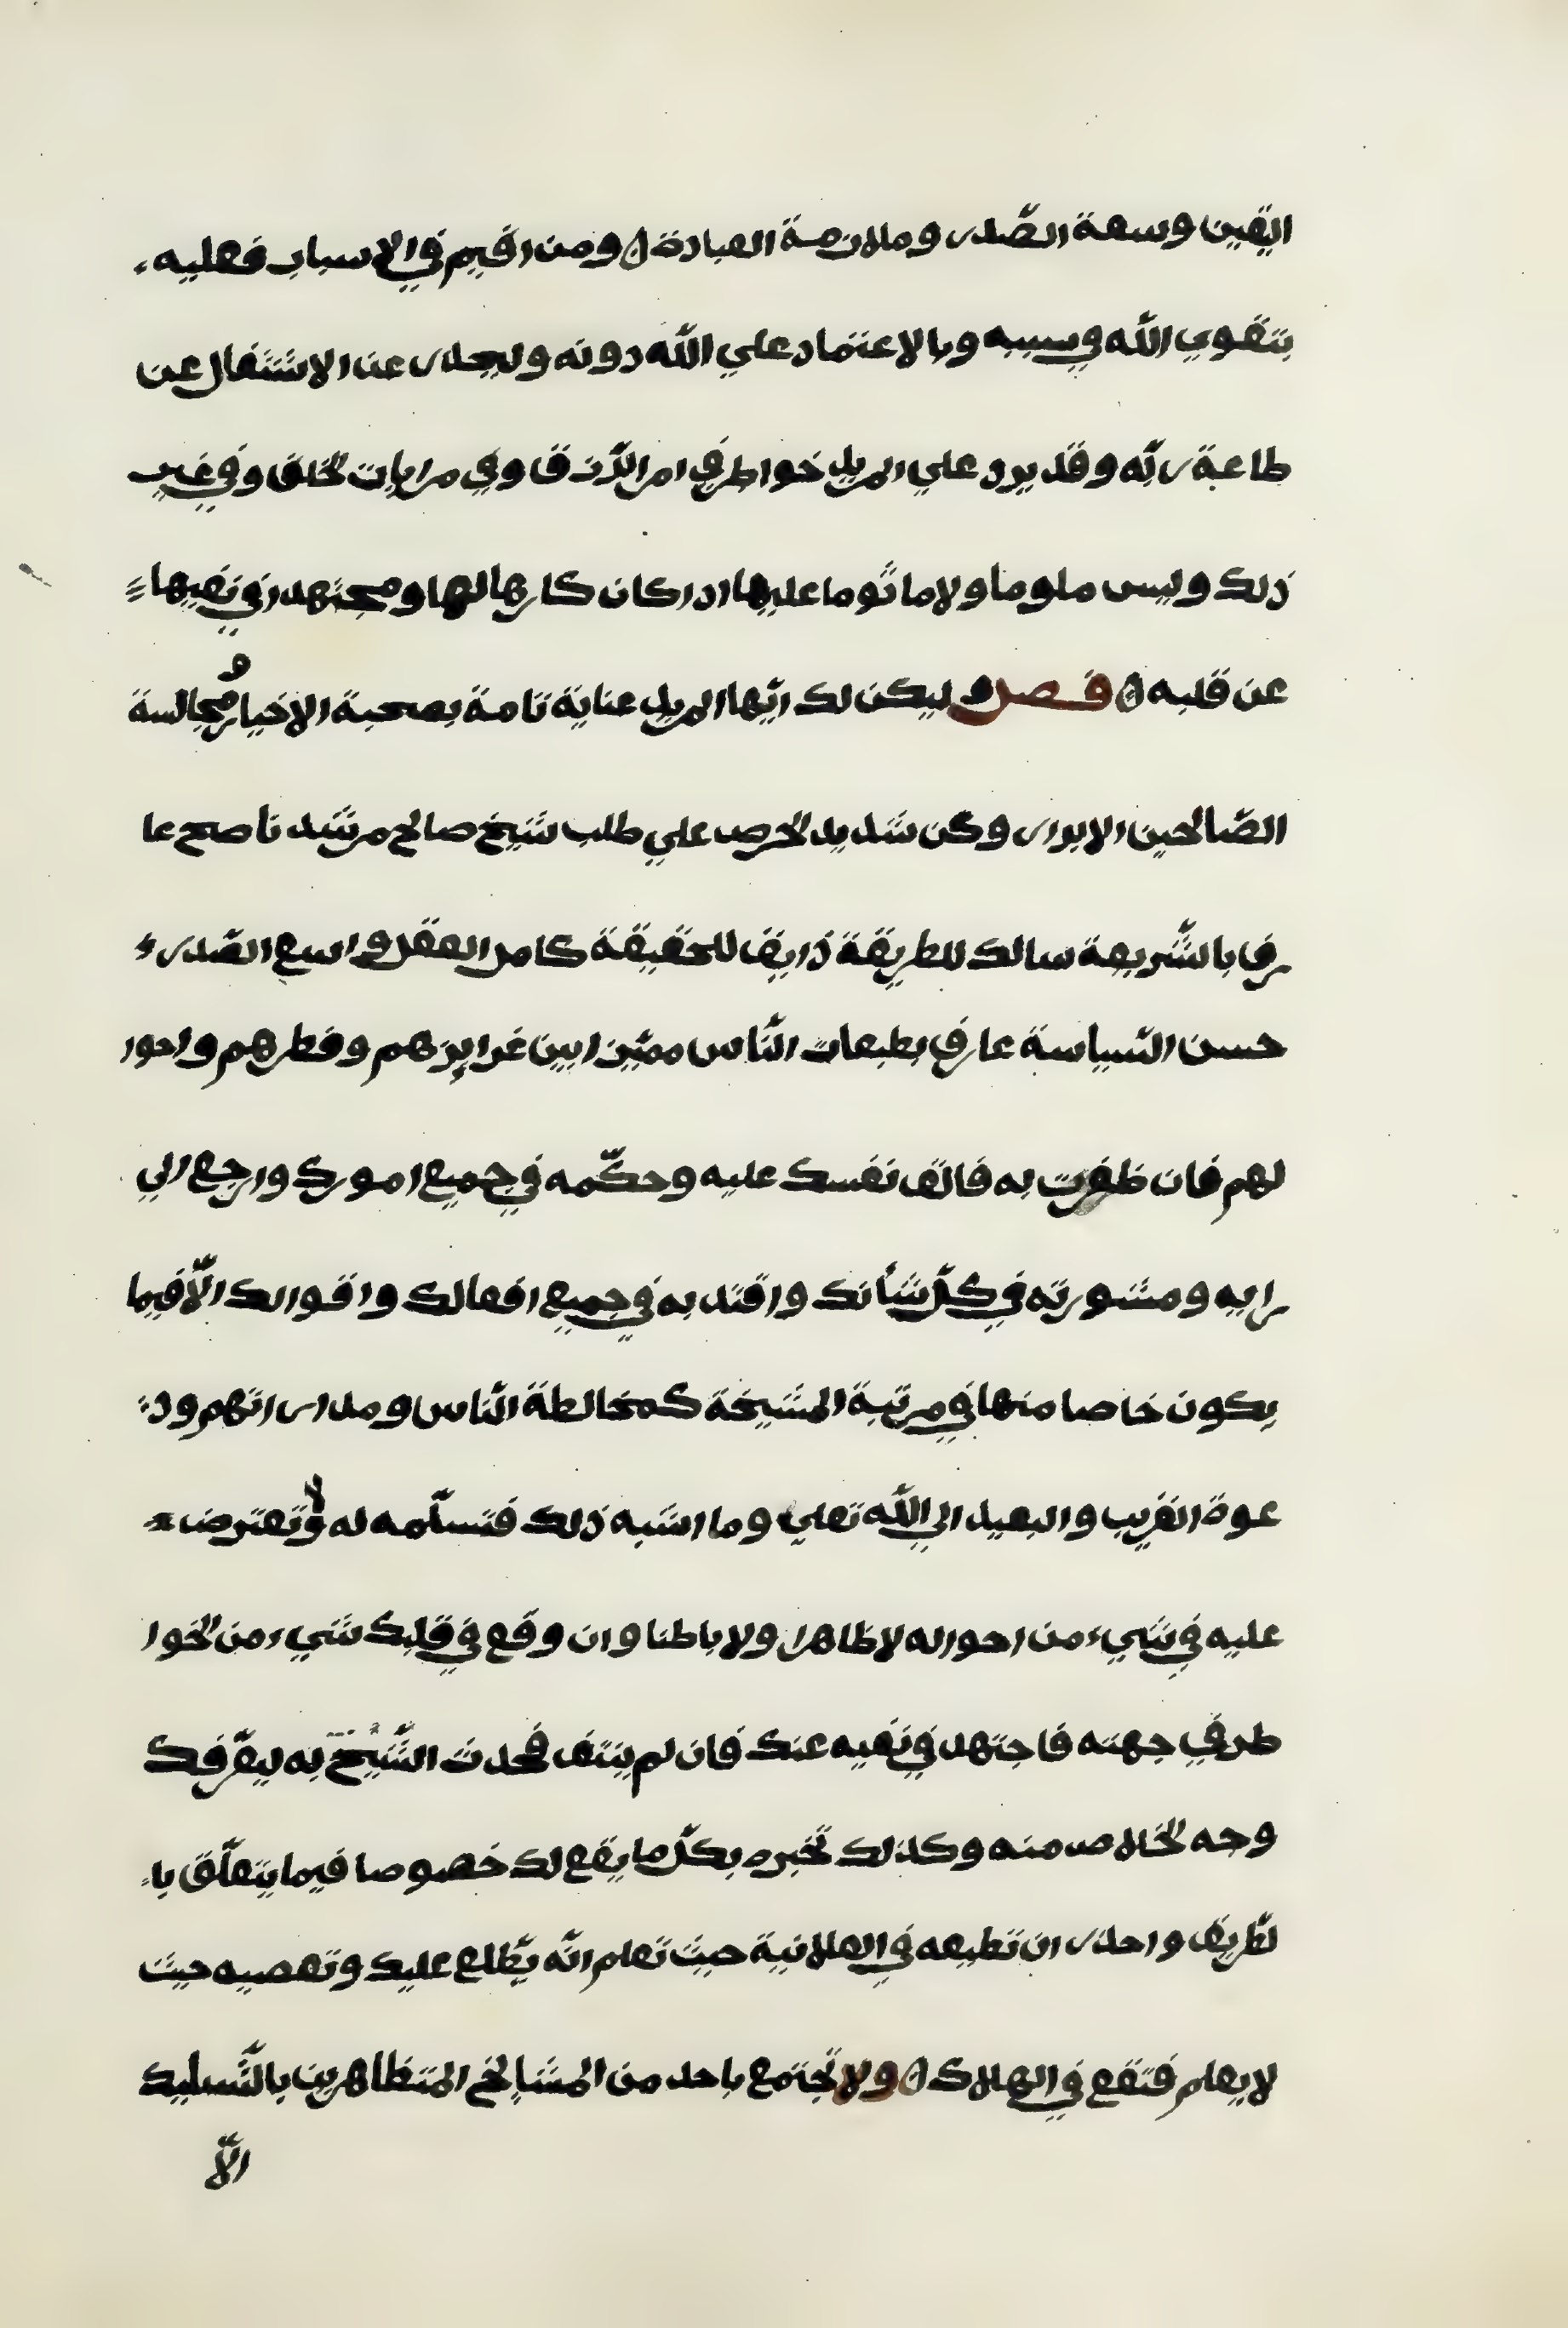 اليقين وسعة الصّدر وملازمة العبادة ۞ ومن اقيم في الاسباب فعليه
بتقوي اللّه في سببه وبالاعتماد علي اللّه دونه وليحذر عن الاشتغال عن
طاعة ربّه وقد يرد علي المريد خواطر في امر الرّزق وفي مرايات الخلق وفي غير
ذلك وليس ملوما ولا ماثوما عليها اذا كان كارها لها ومجتهدا في نفيها
عن قلبه ۞ فصل وليكن لك ايّها المريد عناية تامة بصحبة الاخيار ومُجالسة
الصّالحين الابرار وكن شديد الحرص علي طلب شيخ صالح مرشد ناصح عا
رف بالشّريعة سالك للطريقة ذايق للحقيقة كامل العقل واسع الصّدر
حسن السّياسة عارف بطبعات النّاس مميّزا بين غرايزهم وفطرهم واحوا
لهم فان ظفرت به فالق نفسك عليه وحكّمه في جميع امورك وارجع الي
رايه ومشورته في كلّ شأنك واقتد به في جميع افعالك واقوالك الّا فيما
يكون خاصا منها في مرتبة المشيخة كمخالطة النّاس ومداراتهم ود
عوة القريب والبعيد الي اللّه تعلي وما اشبه ذلك فتسلّمه له ولا تعترض
عليه في شيء من احواله لا ظاهرا ولا باطنا وان وقع في قلبك شيء من الخوا
طر في جهته فاجتهد في نفيه عنك فان لم ينتف فحدث الشّيخ به ليعّرفك
وجه الخلاص منه وكذلك تخبره بكلّ ما يقع لك خصوصا فيما يتعلّق با
لطّريق واحذر ان تطيعه في العلانية حيث تعلم انّه يطّلع عليك وتعصيه حيث
لا يعلم فتقع في الهلاك ۞ ولا تجتمع باحد من المشايخ المتظاهرين بالتّسليك
الّا